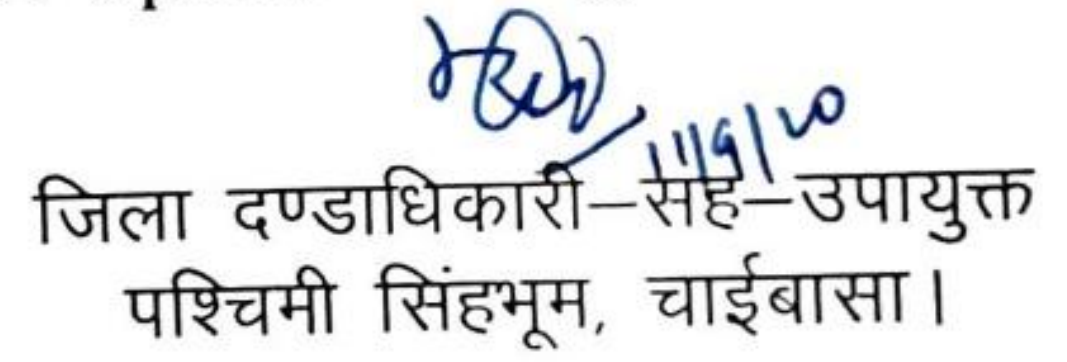 11/9/20
जिला दण्डाधिकारी–सह–उपायुक्त
पश्चिमी सिंहभूम, चाईबासा।